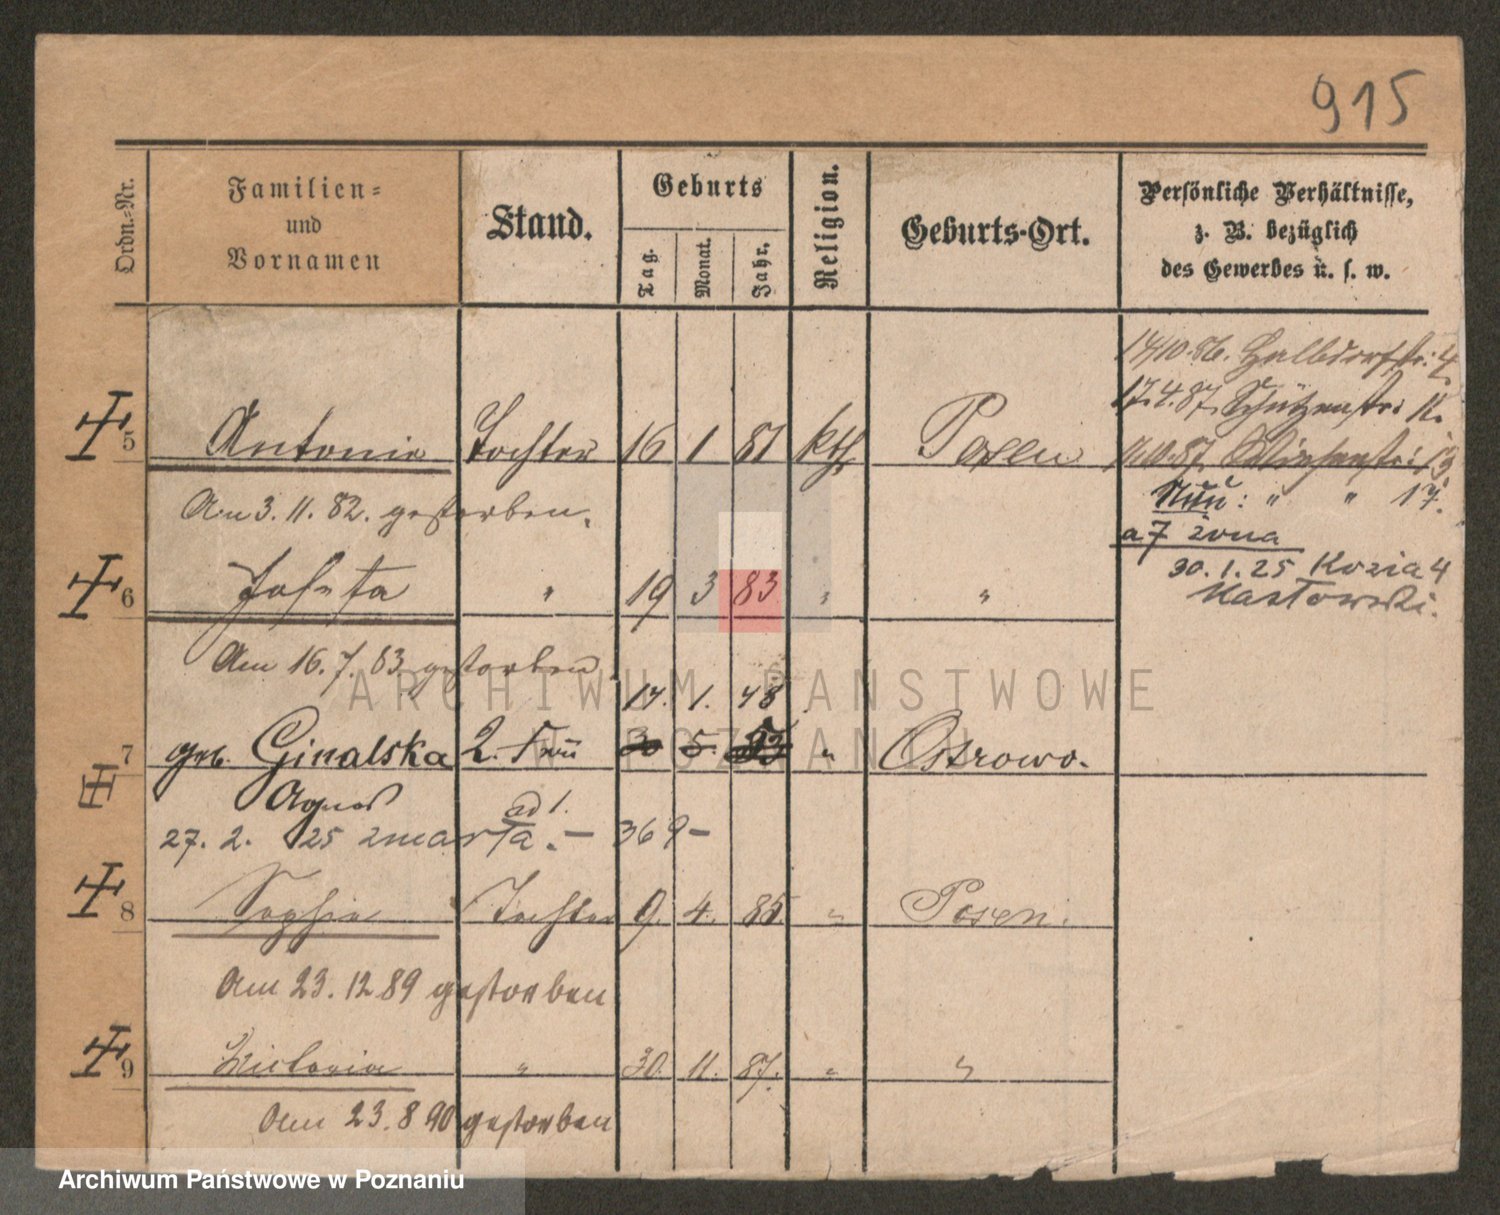 915
Ordn.=Nr.
Familien=
und
Vornamen
Stand.
Geburts
Tag.
Monat.
Jahr.
Religion.
Geburts-Ort.
Persönliche Verhältnisse,
z. B. bezüglich
des Gewerbes u. s. w.
14/10.86. Halbdorfstr: 4
17.4.87. Schützenstr: 11.
5 Antonie Tochter 16 1 81 kth. Posen
11.10.87. 13
Am 3. 11. 82. gestorben.
Neu: " " 17.
a 7 żona
30.1.25 Kozia 4
6 Josefa " 19 3 83 " "
Kastowski.
Am 16. 7. 83 gestorben
14. 1. 48
7 geb. Ginalska 2. Frau 30 5. " Ostrowo.
Agnes ad 1.
27. 2. 25 zmarła. — 369 —
8 Sophie Tochter 9. 4. 85. " Posen.
Am 23. 12 89 gestorben
9 Victoria " 30. 11. 87. " "
Am 23. 8 90 gestorben
ARCHIWUM PAŃSTWOWE
W POZNANIU
Archiwum Państwowe w Poznaniu